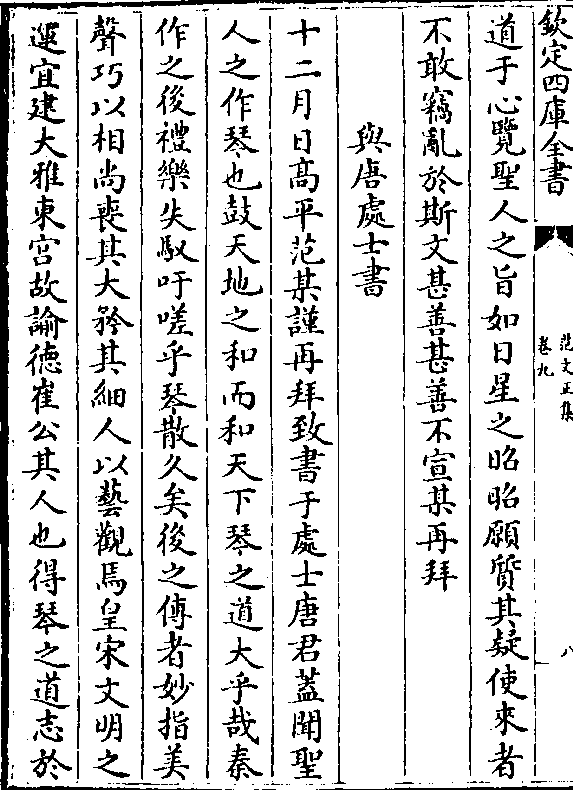 欽定四庫全書
范文正集
卷九
八
道于心覽聖人之旨如日星之昭昭願質其疑使來者
不敢竊亂於斯文甚善甚善不宣某再拜
與唐處士書
十二月日髙平范某謹再拜致書于處士唐君蓋聞聖
人之作琴也鼓天地之和而和天下琴之道大乎哉秦
作之後禮樂失馭吁嗟乎琴散久矣後之傳者妙指美
聲巧以相尚喪其大矜其細人以藝觀焉皇宋文明之
運宜建大雅東宫故諭德崔公其人也得琴之道志於